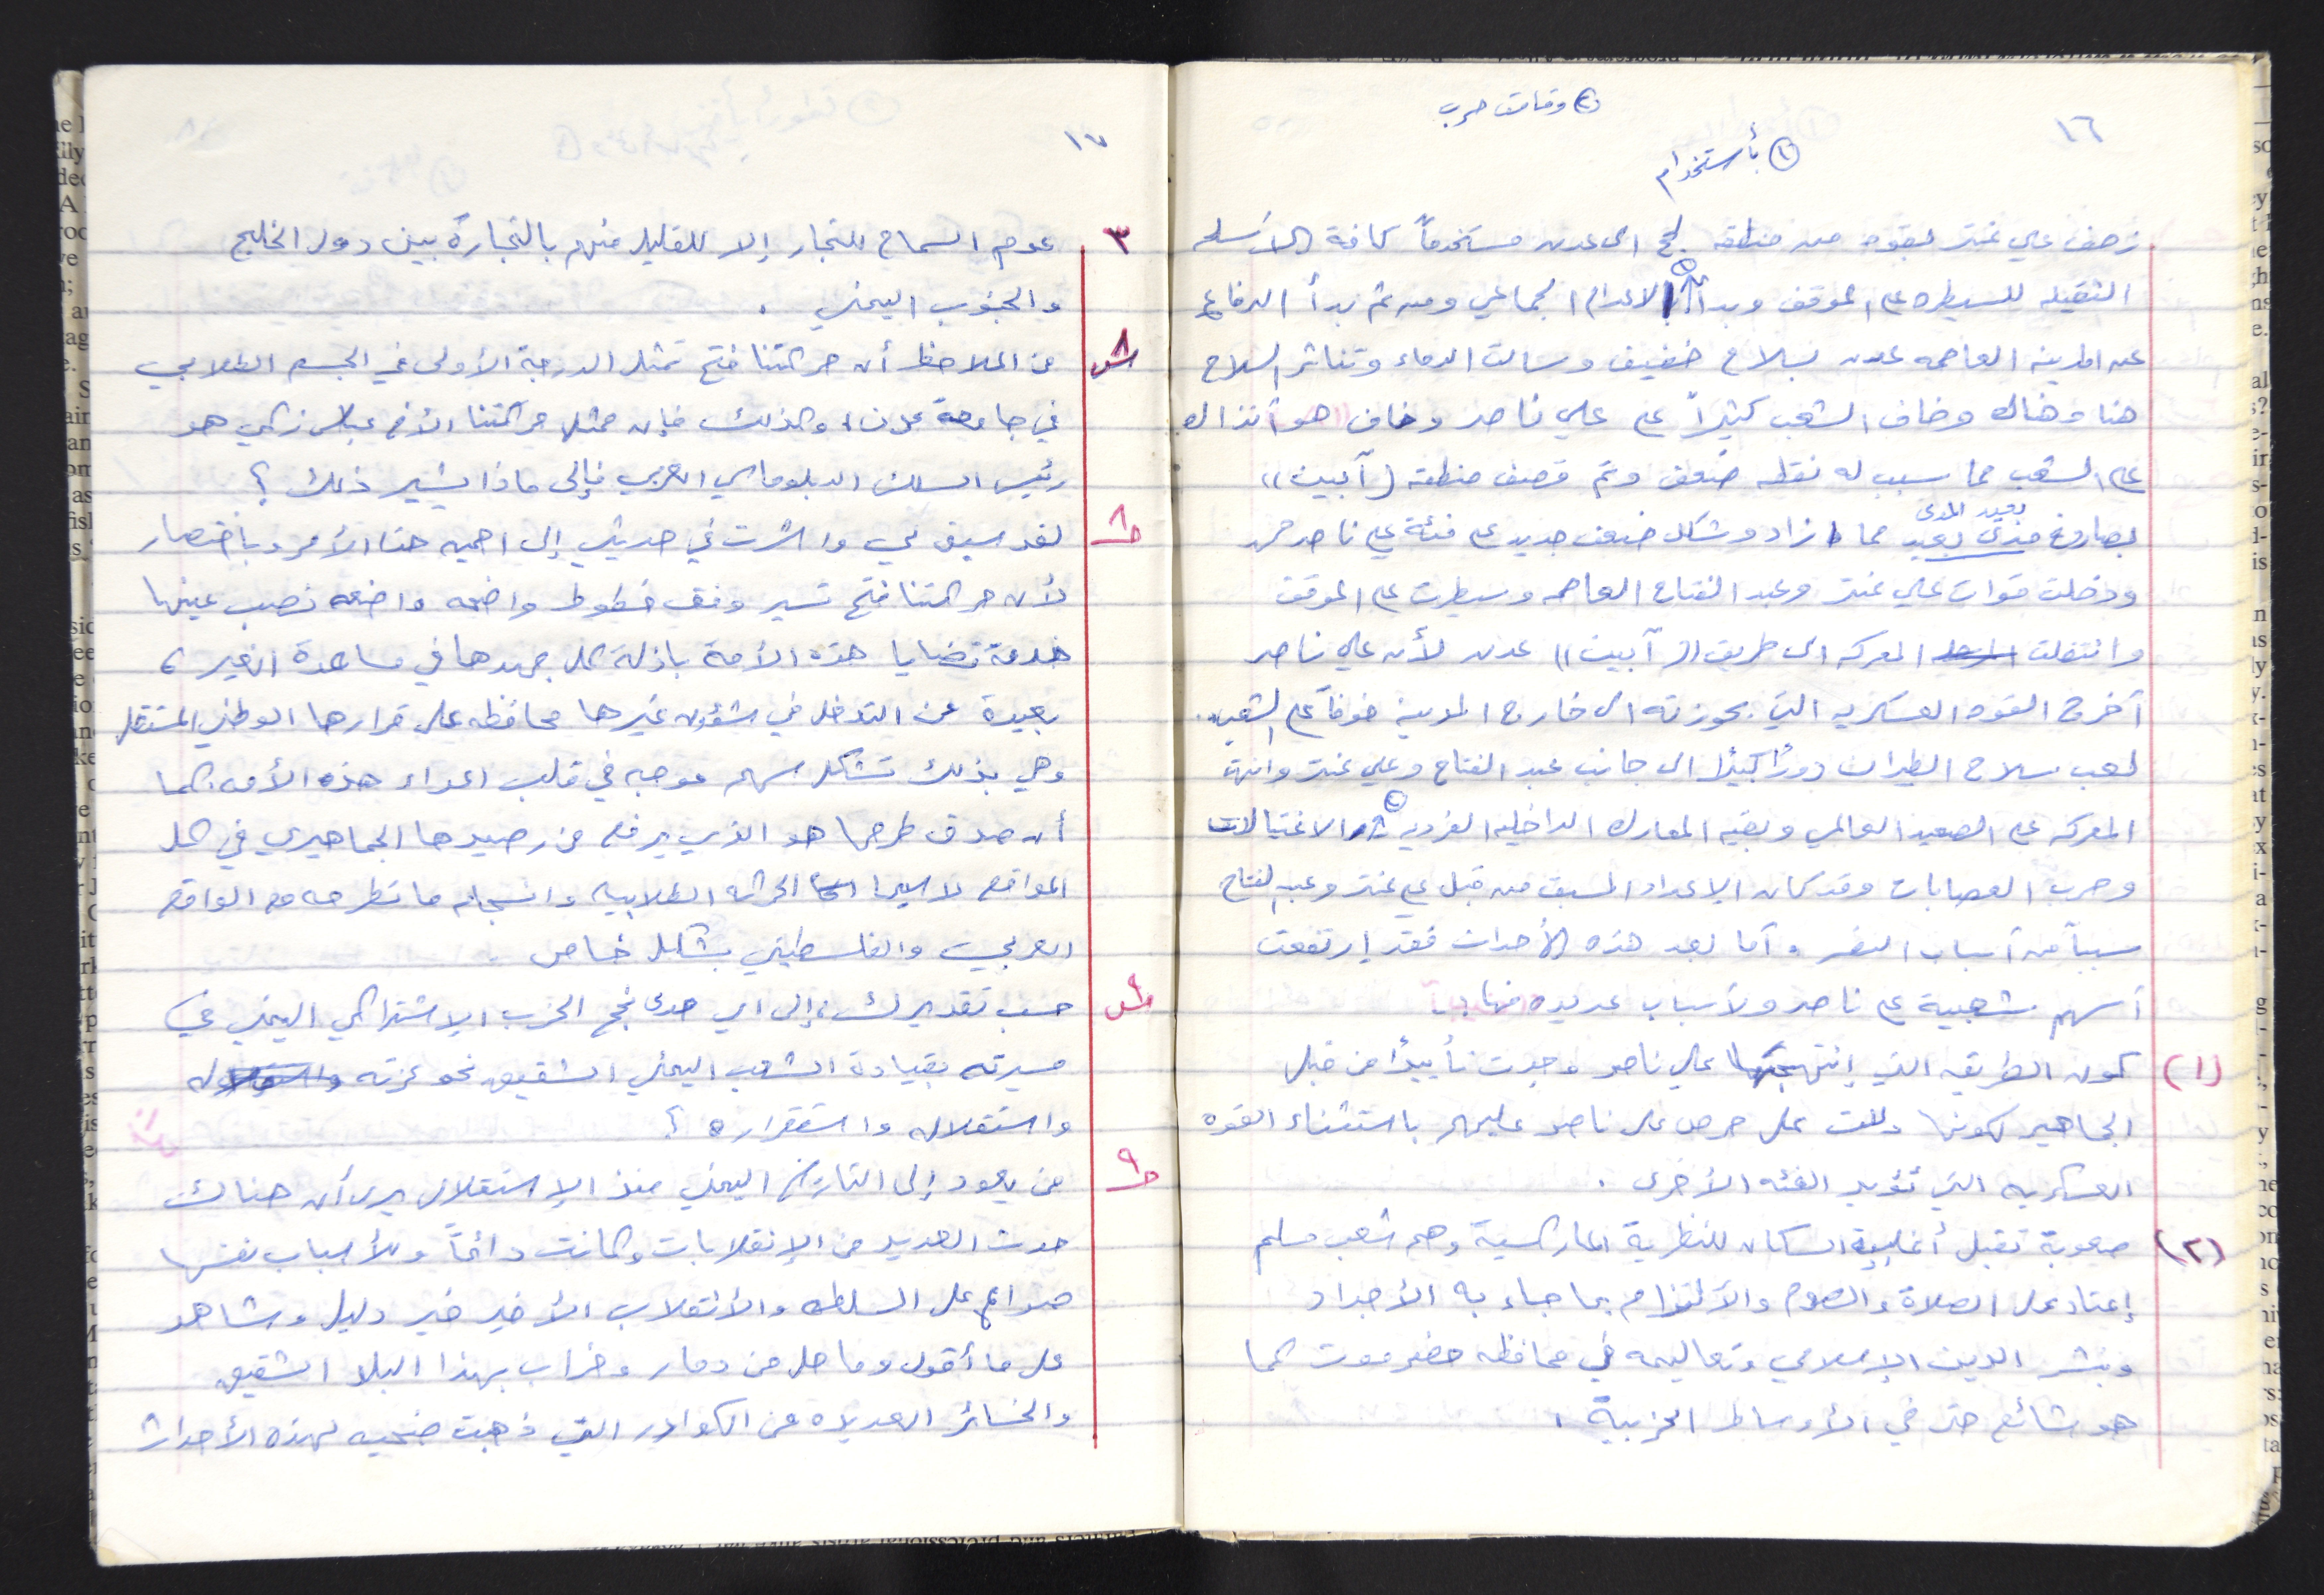 ١٦
② وقامت حرب
① بأستخدام
زحف علي عنتر بقوه من منطقه لحج الى عدن مستخدماً كافة الاسلحه
الثقيله للسيطره على الموقف وبدأ الاعدام الجماعي ومن ثم بدأ الدفاع
عن المدينه العاصمه عدن بسلاح خفيف وسالت الدماء وتناثر السلاح
هنا وهناك وخاف الشعب كثيراً على علي ناصر وخاف هو آنذاك
على الشعب مما سبب له نقطه ضعف وتم قصف منطقه (( آبين ))
بعيد المدى
بصاروخ مدى بعيد مما زاد وشكل ضعف جديد على فئة علي ناصر محمد
ودخلت قوات علي عنتر وعبد الفتاح العاصمه وسيطرت على الموقف
وانتقلت المعركه الى طريق (( آبين )) عدن لأن علي ناصر
آخرج القوه العسكريه التي بحوزته الى خارج المدينه خوفاً على الشعب.
لعب سلاح الطيران دوراً كبيراً الى جانب عبد الفتاح وعلي عنتر وانتهت
المعركه على الصعيد العالمي وبقيه المعارك الداخليه الفرديه الاغتيالات
وحرب العصابات وقد كان الاعداد المسبق من قبل علي عنتر وعبد الفتاح
سبباً من آسباب النصر . وآما بعد هذه الأحداث فقد إرتفعت
آسهم شعبية علي ناصر ولآسباب عديده منها :
(١) كون الطريقه التي إنتهجتها علي ناصر وجدت تأييداً من قبل
الجماهير كونها دللت على حرص علي ناصر عليهم باستثناء القوه
العسكريه التي تؤيد الفئه الأخرى .
(٢) صعوبة تقبل أغلبية السكان للنظرية الماركسية وهم شعب مسلم
إعتاد على الصلاة والصوم والآلتزام بما جاء به الأجداد
ونشر الدين الإسلامي وتعاليمه في محافظه حضرموت كما
هو شائع حتى في الأوساط الحزبية .
١٧
٣ عدم السماح للتجار إلا للقليل منهم بالتجارة بين دول الخليج
والجنوب اليمني .
س٨ من الملاحظ أن حركتنا فتح تمثل الدرجة الأولى في الجسم الطلابي
في جامعة عدن، وكذلك فإن ممثل حركتنا الأخ عباس زكي هو
رئيس السلك الدبلوماسي العربي فإلى ماذا يشير ذلك ؟
ج٨ لقد سبق لي واشرت في حديثي إلى اهميه هذا الأمر وباختصار
لأن حركتنا فتح تسير وفق خطوط واضحه واضعه نصب عينها
خدمة قضايا هذه الأمة باذلة كل جهدها في مساعدة الغير ،
بعيدة عن التدخل في شؤون غيرها محافظه على قرارها الوطني المستقل
وهي بذلك تشكل سهم موجه في قلب اعداء هذه الأمه. كما
أن صدق طرحها هو الذي يرفع من رصيدها الجماهيري في كل
المواقع لا سيما الحركه الطلابيه وانسجام ما تطرحه مع الواقع
العربي والفلسطيني بشكل خاص
س٩ حسب تقديرك، إلى اي مدى نجح الحزب الاشتراكي اليمني في
مسيرته بقيادة الشعب اليمني الشقيق نحو عزته
واستقلاله واستقراره ؟
ج٩ من يعود إلى التاريخ اليمني منذ الإستقلال يرى أن هناك
حدث العديد من الإنقلابات وكانت دائماً وللأسباب نفسها
صراع على السلطه والأنقلاب الأخير خير دليل وشاهد
على ما أقول وما حل من دمار وخراب بهذا البلد الشقيق
والخسائر العديده من الكوادر التي ذهبت ضحيه لهذه الأحداث